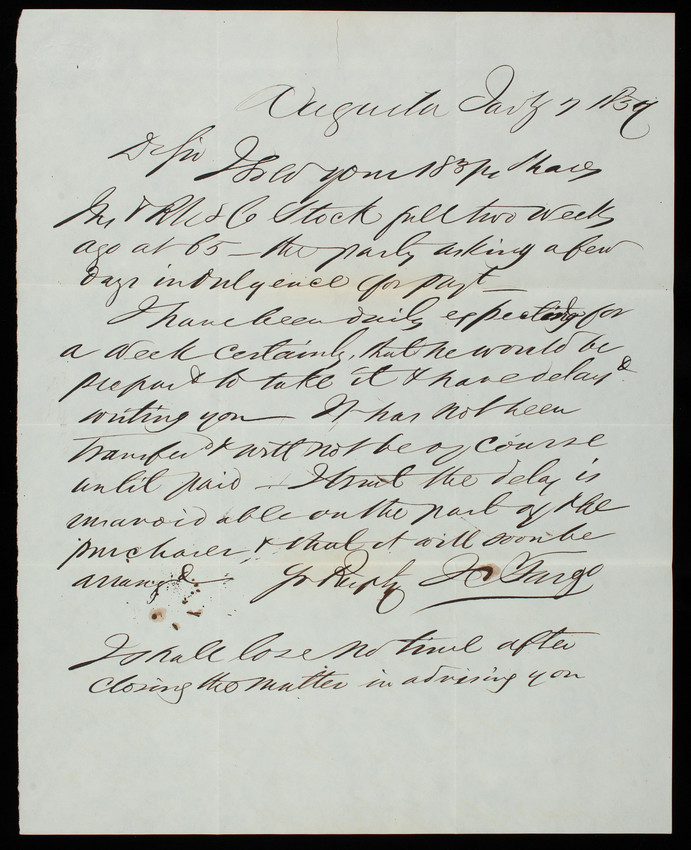 Augusta Jany 7 1857
D Sir I sold your 183 pr Shares
Ins & Bk Co Stock full two weeks
ago at 65 – the party asking a few
days indulgence for payt –
I have been daily expecting for
a week certainly, that he would be
prepard to take it & have delayd
writing you – It has not been
transferd & will not be of course
until paid – I trust the delay is
unavoidable on the part of the
purchaser & that it will soon be
arrangd. Yr Respty Fargo
I shall lose no time after
closing the matter in advising you